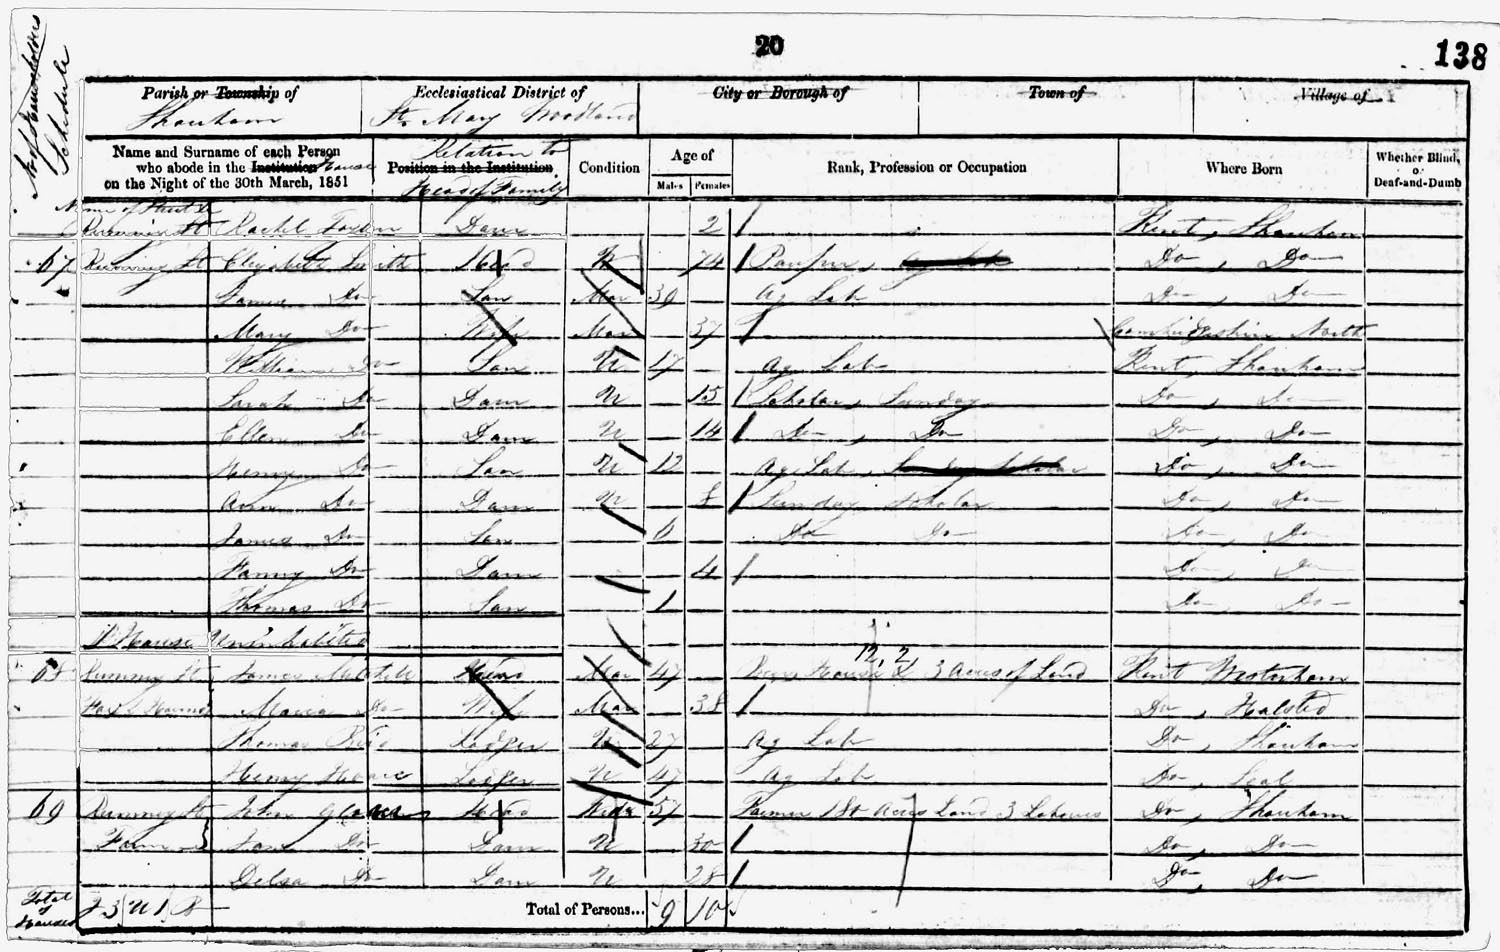 20
138
No of Householders Schedule
Parish or Township of
Ecclesiastical District of
City or Borough of
Town of
Village of
Shoreham
St. Mary Woodland
Name and Surname of each Person who abode in the Institution House on the Night of the 30th March, 1851
Relation to
Position in the Institution
Head of Family
Condition
Age of
Males
Females
Rank, Profession or Occupation
Where Born
Whether Blind, or Deaf-and-Dumb
Name of Street &c
Rachel Daur 2 Kent, Shoreham
67 Elizabeth Smith Head W 74 Pauper, Ag Lab Do, Do
James Do Son Mar 39 Ag Lab Do, Do
Mary Do Wife Mar 37 North
William Do Son U 17 Ag Lab Kent, Shoreham
Sarah Do Daur U 15 Scholar, Sunday Do, Do
Ellen Do Daur U 14 Do, Do Do, Do
Henry Do Son U 12 Ag Lab, Sunday Scholar Do, Do
Ann Do Daur U 8 Sunday Scholar Do, Do
James Do Son 6 Do Do Do, Do
Fanny Do Daur 4 Do, Do
Thomas Do Son 1 Do, Do
1 House Uninhabited
12.2
68 Rumney St James Head Mar 47 Beer House & 3 Acres of Land Kent Westerham
Maria Do Wife Mar 38 Do, Halsted
Thomas Lodger U 27 Ag Lab Do, Shoreham
Henry Lodger U 47 Ag Lab Do, Seal
69 Rumney St John Head Widr 57 Farmer Acres Land 3 Labourers Do, Shoreham
Farm Jane Do Daur U 30 Do, Do
Do Daur U 28 Do, Do
Total of Houses
I 3 U 1 B –
Total of Persons...
9 10